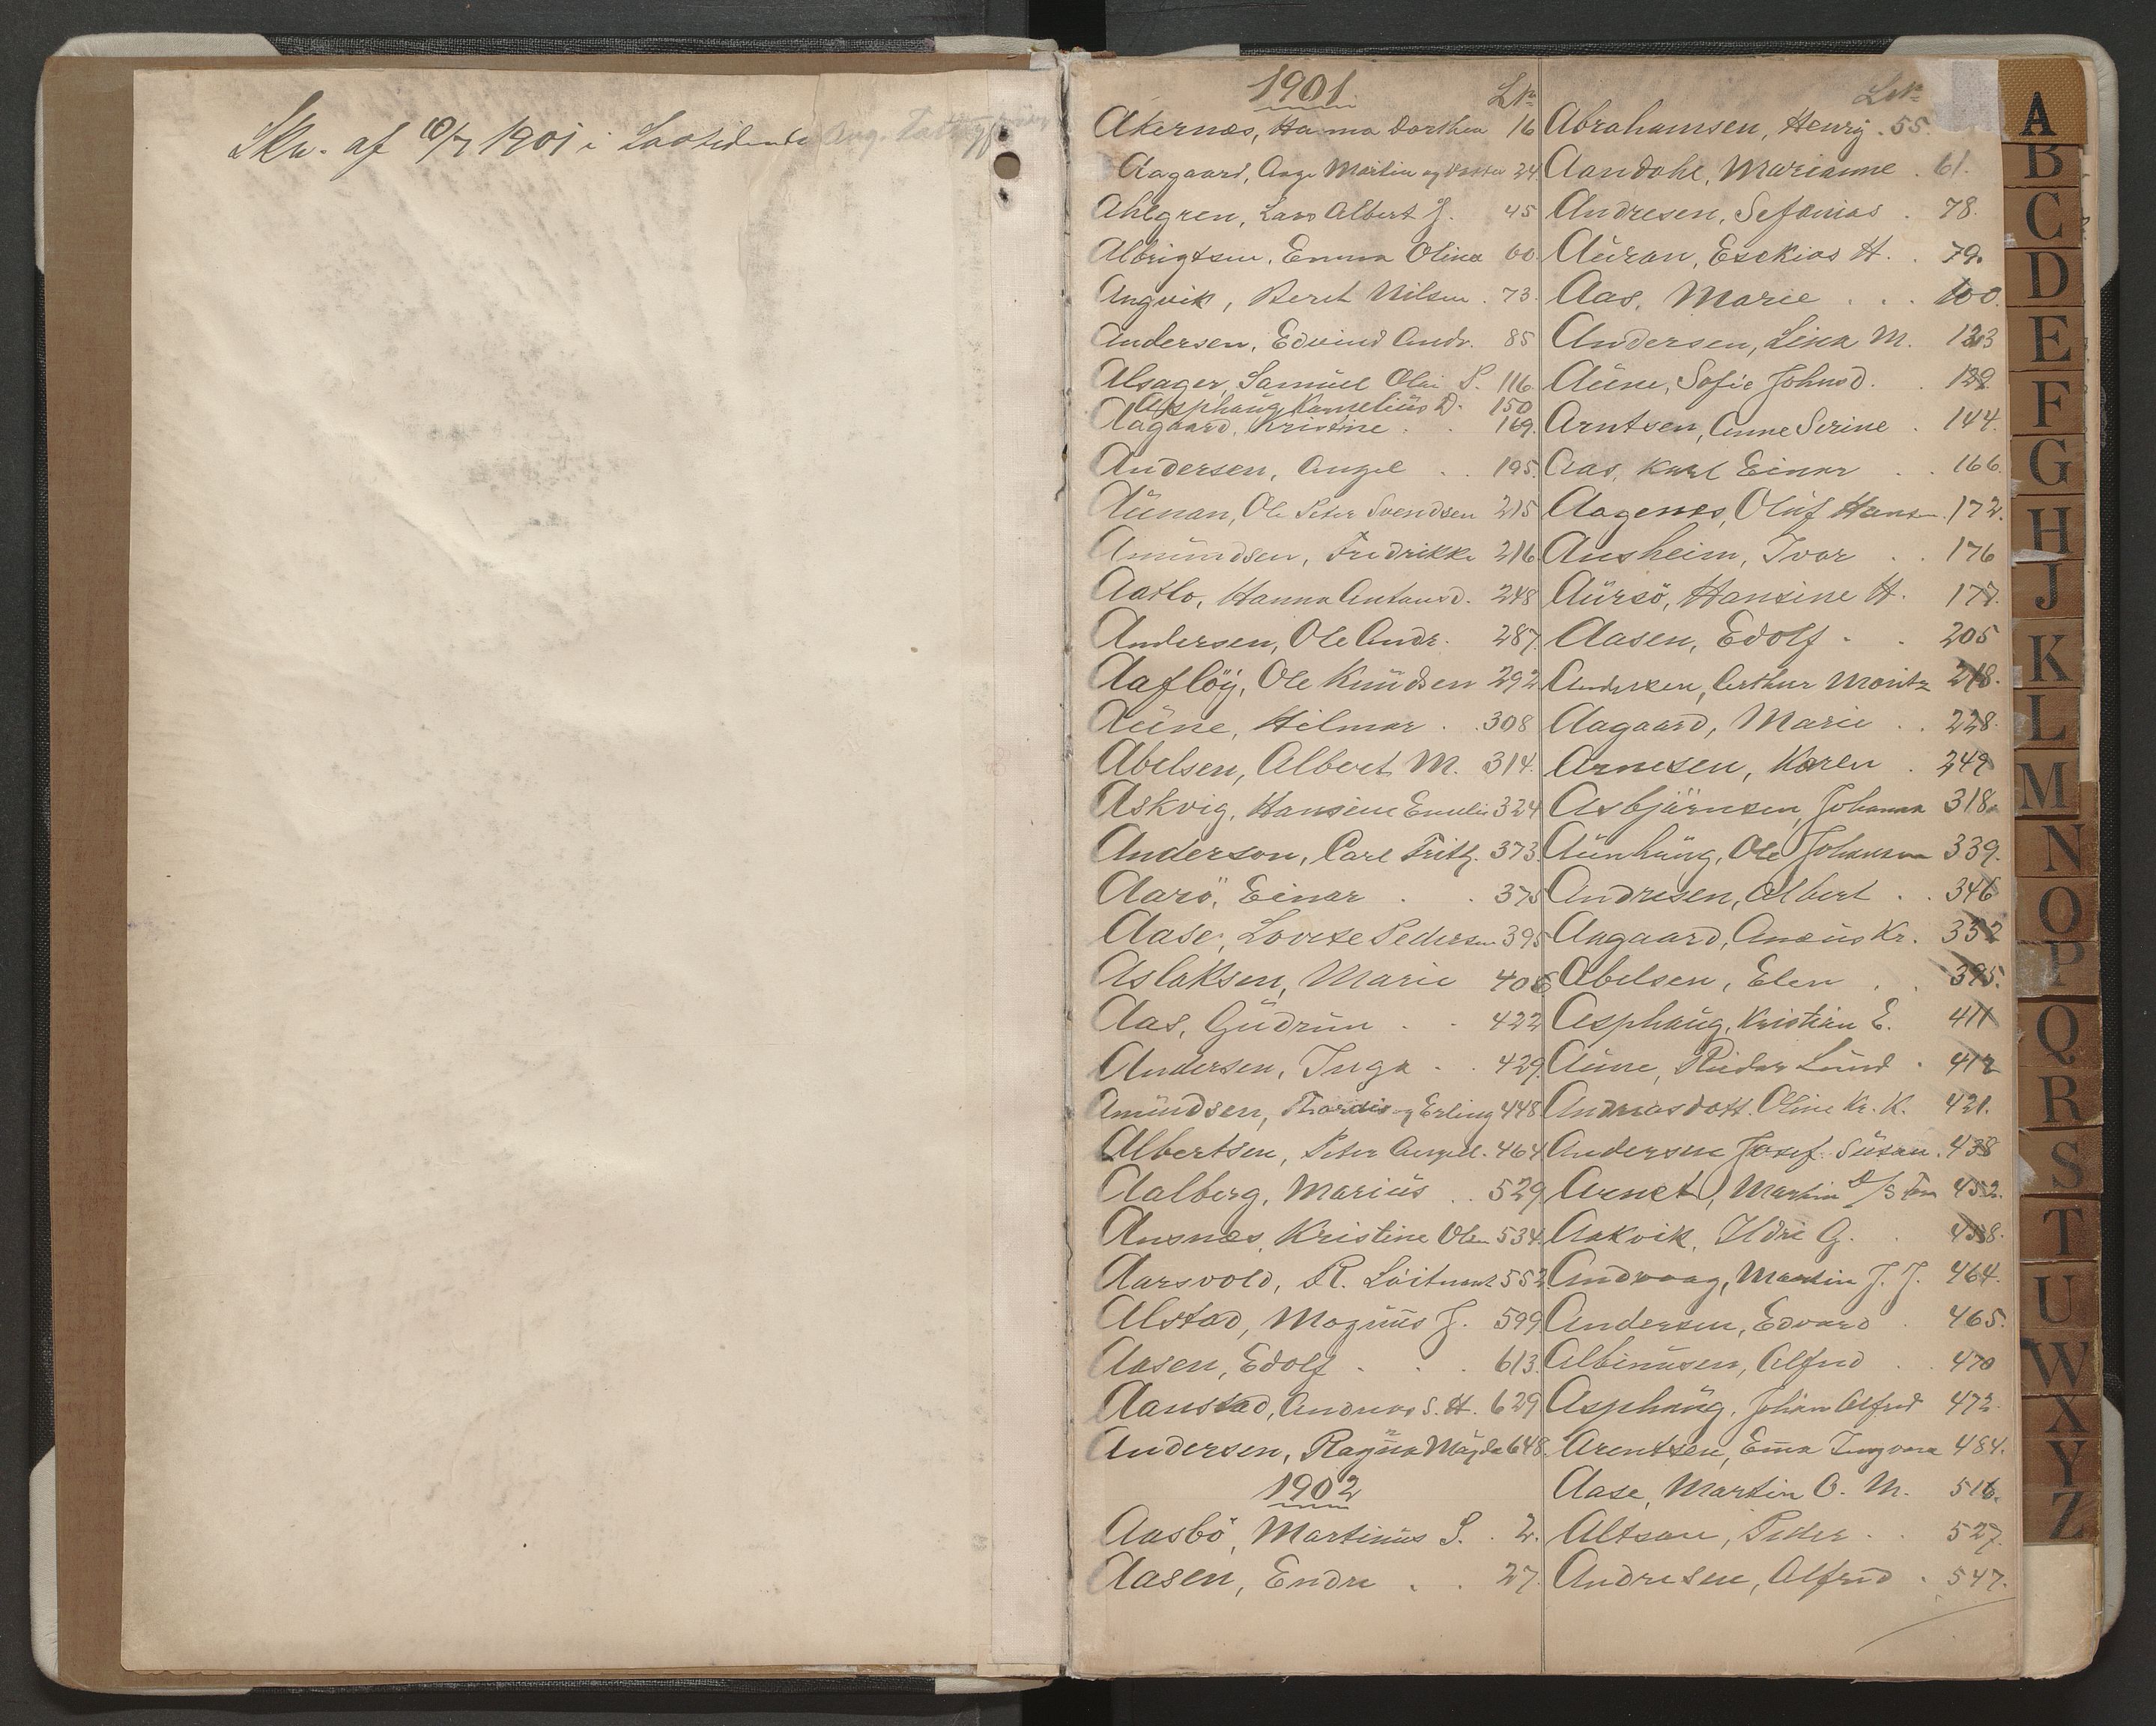 Skr. af 10/7 1901 i
1901
LNr
Akernæs, Hanna Dorthea 16
Aagaard, Aage Martin og 24
Ahlgren, Lars Albert J. 45
Albrigtsen, Emma Olina 60
Angvik, Beret Nilsen . 73
Andersen, Edvind Andr. 85
Alsager, Samuel Olai S. 116
Asphaug Kornelius D. 150
Aagaard, Kristine . . 169.
Andersen, Angel . . 195
Aunan, Ole Peter Svendsen 215
Amundsen, Fredrikke 216
Aatlo, Hanna Antonsd. 248
Andersen, Ole Andr. 287.
Aaflöy, Ole Knudsen 292
Aune, Hilmar . . 308
Abelsen, Albert M. 314.
Askvig, Hansine Emilie 324
Anderson, Carl Fritz. 373
Aarö, Einar . . 375
Aase, Lovise Pedersen 395
Aslaksen, Marie 406
Aas, Gudrun . . 422
Andersen, Inga . . 429.
Amundsen, Thordis og Erling 448
Albertsen, Peter Angel. 464
Aalberg, Marius . . 529
Ausnæs, Kristine Olsen 534.
Aarsvold, R. Löitnant 552
Alstad, Magnus J. 599
Aasen, Edolf . . . 613.
Aanstad, Andreas S. H. 629
Andersen, Ragna Magda 648.
1902
Aasbö, Martinus S. . 2.
Aasen, Endre . . 27.
LNr
Abrahamsen, Henry . 55.
Aandahl, Marianne . 61.
Andresen, Sefanias . 78.
Auran, Esekias H. . 79.
Aas, Marie . . . 100.
Andersen, Lina M. 123
Aune, Sofie Johnsd. . 129.
Arntsen, Anne Serine . 144.
Aas, Karl Einar . . 166.
Aagenes, Oluf Hansen . 172.
Ausheim, Ivar . . 176
Aursö, Hansine H. 177.
Aasen, Edolf . . 205
Andersen, Arthur Moritz 218.
Aagaard, Marie . . 228.
Arnesen, Karen . 249
Asbjörnsen, Johanna 318.
Aunhaug, Ole Johansen 339.
Andresen, Albert . . 346
Aagaard, Anæus Kr. 352
Abelsen, Elen . . 395.
Asphaug, Kristian E. 411
Aune, Reidar Lund . 412
Andreasdatt. Oline Kr. K. 421.
Andersen Josef Susan. 438
Arnet, Martin D/S 452.
Aakvik, Ildri G. . 458.
Andvaag, Martin J. J. 464.
Andersen, Edvard . 465.
Albinusen, Alfred . . 470
Asphaug, Johan Alfred 472
Arentsen, Emma Ingvara 484.
Aase, Martin O. M. 516.
Altsau, Peder . . 527.
Andresen, Alfred . 547.
A
B
C
D
E
F
G
H
J
K
L
M
N
O
P
Q
R
S
T
U
W
X
Y
Z